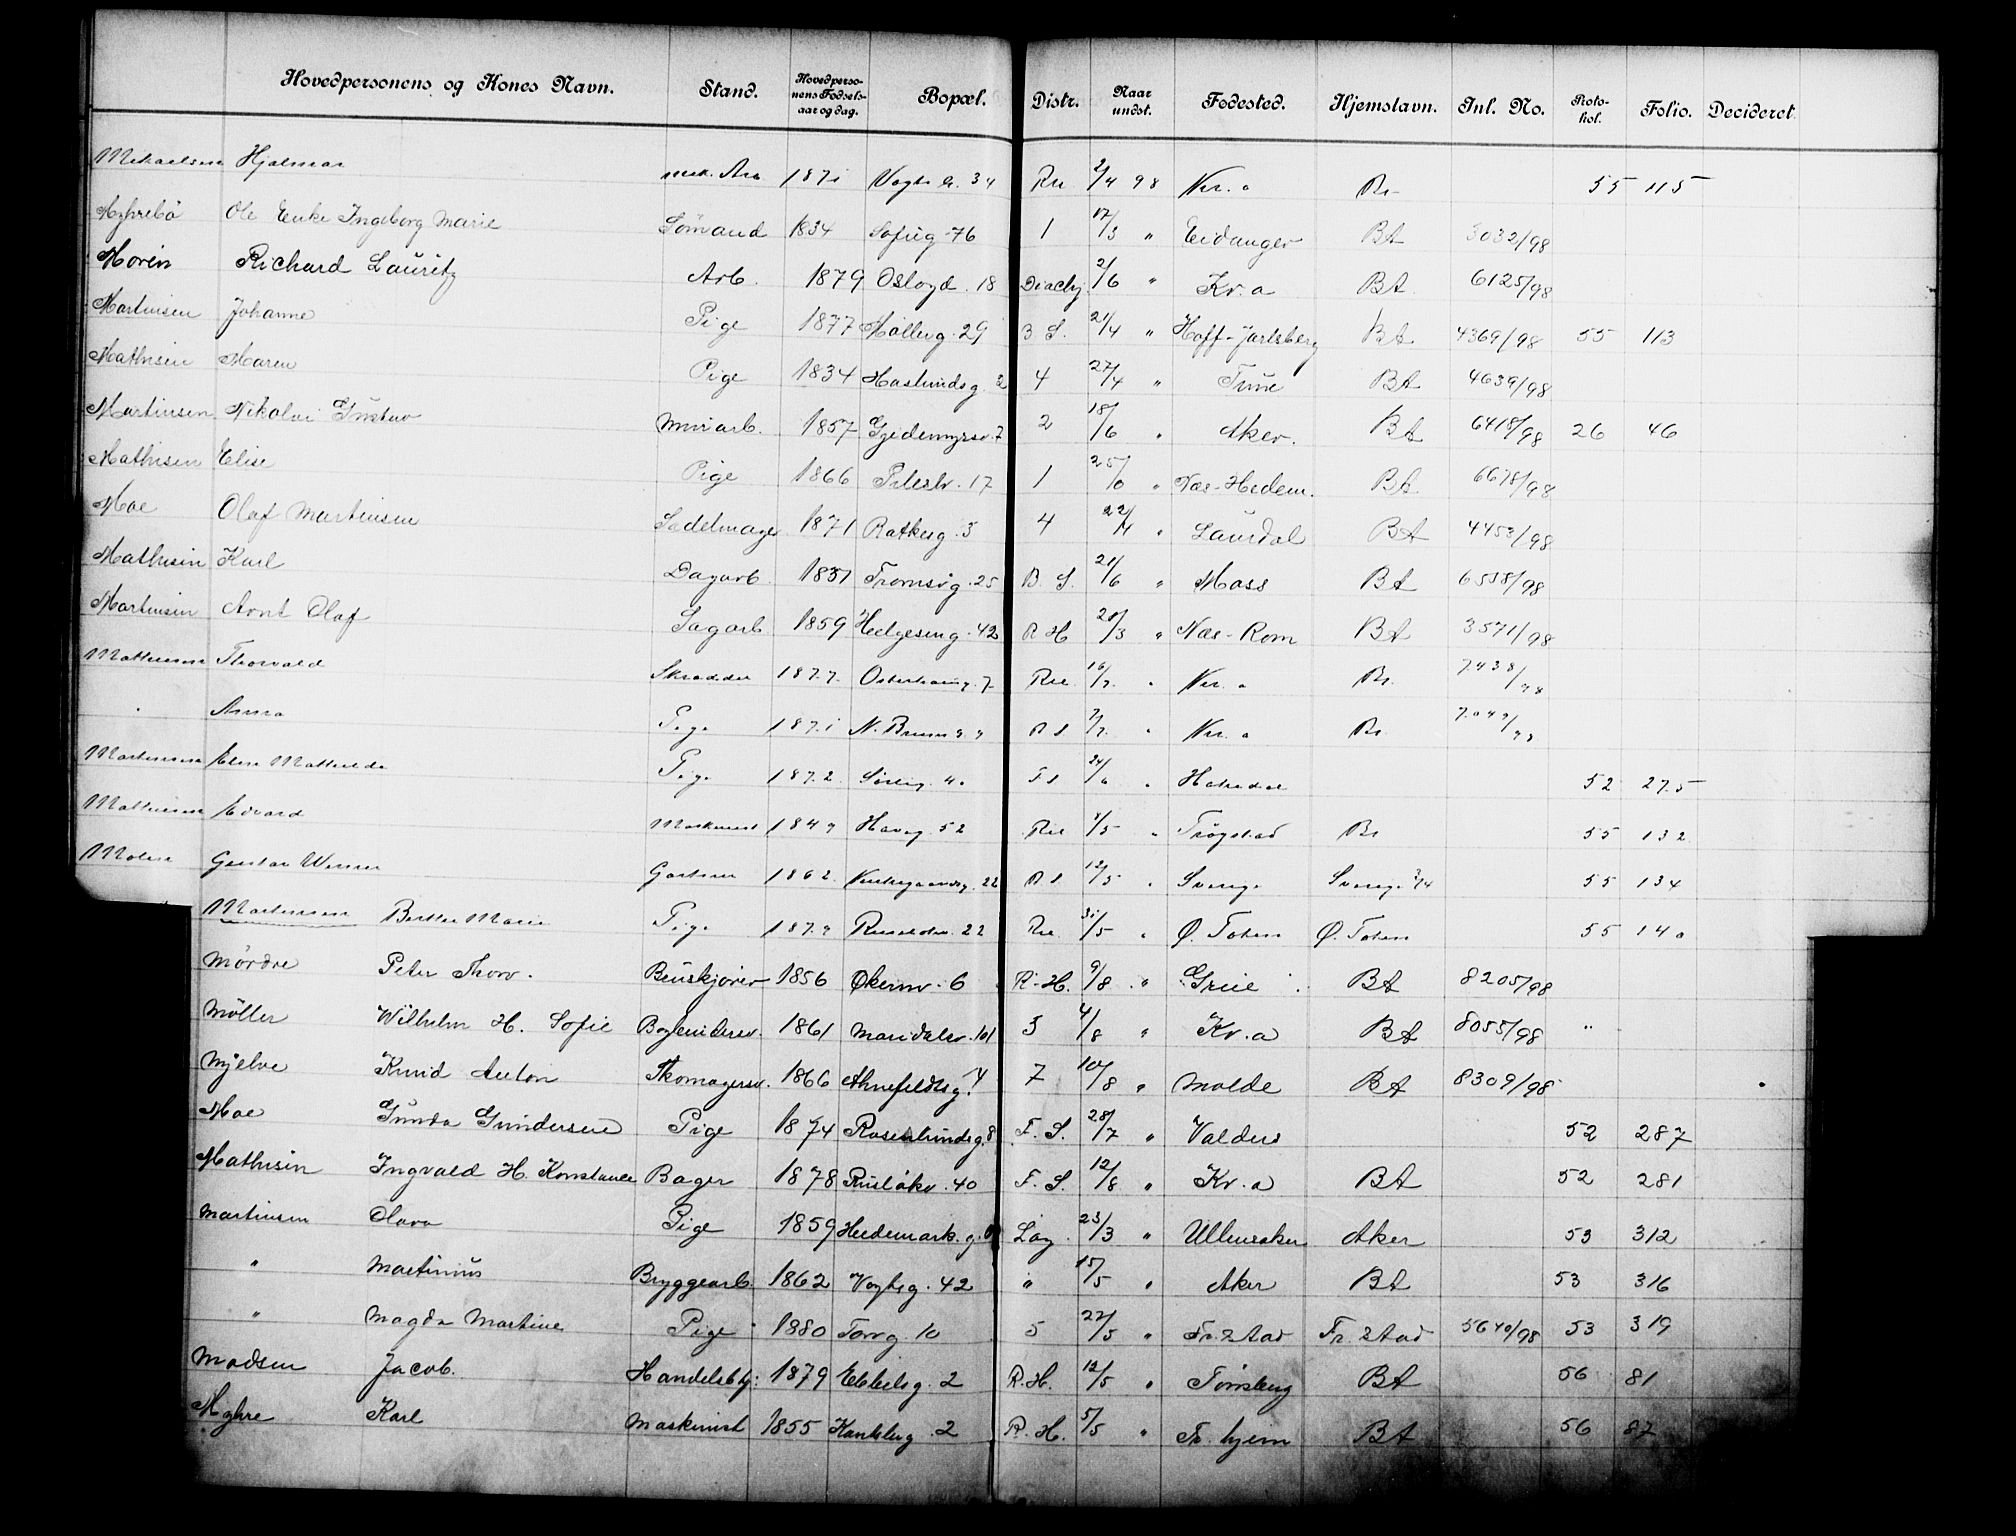 Hovedpersonens og Kones Navn. Stand. Hovedpersonens Fødselsaar og dag. Bopæl. Distr. Naar undst. Fødested. Hjemstavn. Inl. No. Protokol. Folio. Decideret.
Mikaelsen Hjalmar mek. Arb 1871 Vogts g. 34 Ru 2/4 98 Kr. a Br 55 115
Myhrebö Ole Enke Ingeborg Marie Sömand 1834 Sofieg. 76 1 17/3 " Eidanger BA 3032/98
Moren Richard Lauritz Arb. 1879 Oslogd. 18 Diachj. 2/6 " Kr. a BA 6125/98
Martinsen Johanne Pige 1877 Mölleg. 29 B S. 21/4 " Hoff-Jarlsberg BA 4369/98 55 113
Mathisen Maren Pige 1834 Haslundsg. 2 4 27/4 " Tune BA 4639/98
Martinsen Nikolai Gustav Murarb. 1857 Gjedemyrsv. 7 2 18/6 " Aker. BA 6418/98 26 46
Mathisen Elise Pige 1866 Pilestr. 17 1 25/6 " Næs-Hedem. BA 6678/98
Moe Olaf Martinsen Sadelmager 1871 Ratkesg. 5 4 22/4 " Laurdal BA 4453/98
Mathisen Karl Dagarb. 1851 Tromsög. 25 B. S. 21/6 " Moss BA 6538/98
Martinsen Arnt Olaf Sagarb 1859 Helgeseng. 42 R H 28/3 " Næs-Rom BA 3571/98
Mathisen Thorvald Skrædder 1877 7 Ru 16/7 " Kr. a Br. 7438/98
" Anna Pige 1871 N. R S 7/7 " Kr. a Br. 7049/98
Martinsen Elen Mathilde Pige 1872 Sörlig. 40 F S 24/6 " Hakedal 52 275
Mathisen Edvard Maskinist 1849 Haveg. 52 Ru 4/5 " Trögstad Br 55 132
Molin Gustav Werner Gartner 1862 22 R S 12/5 " Sverige Sverige 55 134
Martinsen Berthe Marie Pige 1879 22 Ru 31/5 " Ø. Toten Ø. Toten 55 140
Mördre Peter Thorv. Bruskjörer 1856 Økernv. 6 R. H. 9/8 " Grue BA 8205/98
Möller Wilhelm H. Sofie Bogbindersv. 1861 Maridalsv. 101 3 4/8 " Kr. a BA 8055/98 "
Mjelve Knud Anton Skomagersv. 1866 Ahnefeldtsg. 4 7 10/8 " Molde BA 8309/98
Moe Gunda Gundersen Pige 1874 Rosenlundsg. 8 F. S. 28/7 " Valders 52 287
Mathisen Ingvald H. Konstance Bager 1878 Ruslökv. 40 F. S. 12/8 " Kr. a BA 52 281
Martinsen Olava Pige 1859 Hedemark. g. Log. 23/3 " Ullensaker Aker 53 312
" Martinius Bryggearb. 1862 Vogtsg. 42 " 15/5 " Aker BA 53 316
" Magda Martine Pige 1880 Torvg. 10 5 27/5 " Fr. stad Fr. stad 5640/98 53 319
Madsen Jacob. Handelsbtj: 1879 Ebbelsg. 2 R. H. 12/5 " Tönsberg BA 56 81
Myhre Karl Maskinist 1855 2 R. H. 5/5 " Tr. hjem BA 56 87